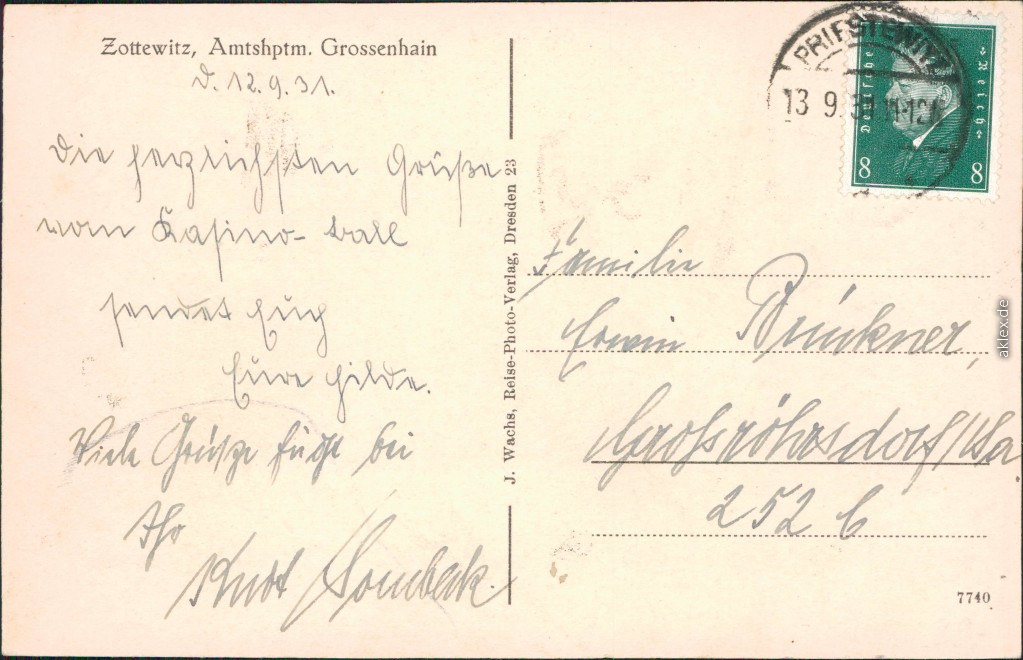 Zottewitz, Amtshptm. Grossenhain
d. 12.9.31.
Die herzlichsten Grüße
vom Kasino-ball
sendet Euch
Eure Hilde.
Viele Grüße fügt bei
Ihr
Kurt Sombeck.
J. Wachs, Reise-Photo-Verlag, Dresden 23
PRIESTEWITZ
13 9.31 11-12
Deutsches Reich
8 8
Familie
Erwin Brückner,
Großröhrsdorf/Sa
252 b
7740
aklex.de